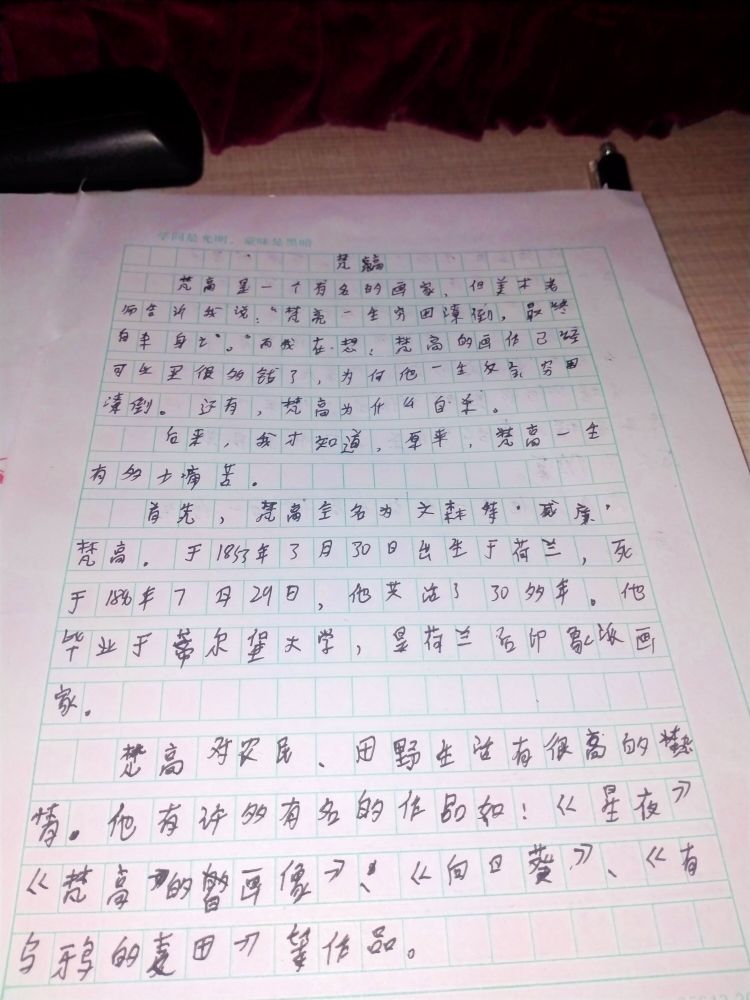 学问是光明，蒙昧是黑暗
梵高
梵高是一个有名的画家，但美术老
师告诉我说："梵高一生穷困潦倒，最终
自杀身亡"。而我在想，梵高的画作已经
可以卖很多钱了，为何他一生穷困
潦倒。还有，梵高为什么自杀。
后来，我才知道，原来，梵高一生
有多么痛苦。
首先，梵高全名为文森特·威廉·
梵高。于1853年3月30日出生于荷兰，死
于1890年7月29日，他共活了30多年。他
毕业于蒂尔堡大学，是荷兰后印象派画
家。
梵高对农民、田野生活有很高的热
情。他有许多有名的作品如：《星夜》
《梵高的自画像》、《向日葵》、《有
乌鸦的麦田》等作品。